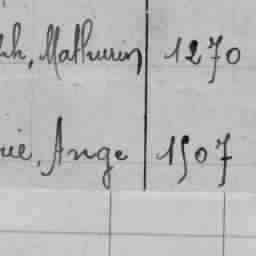 Mathurin 1270
Ange 1507